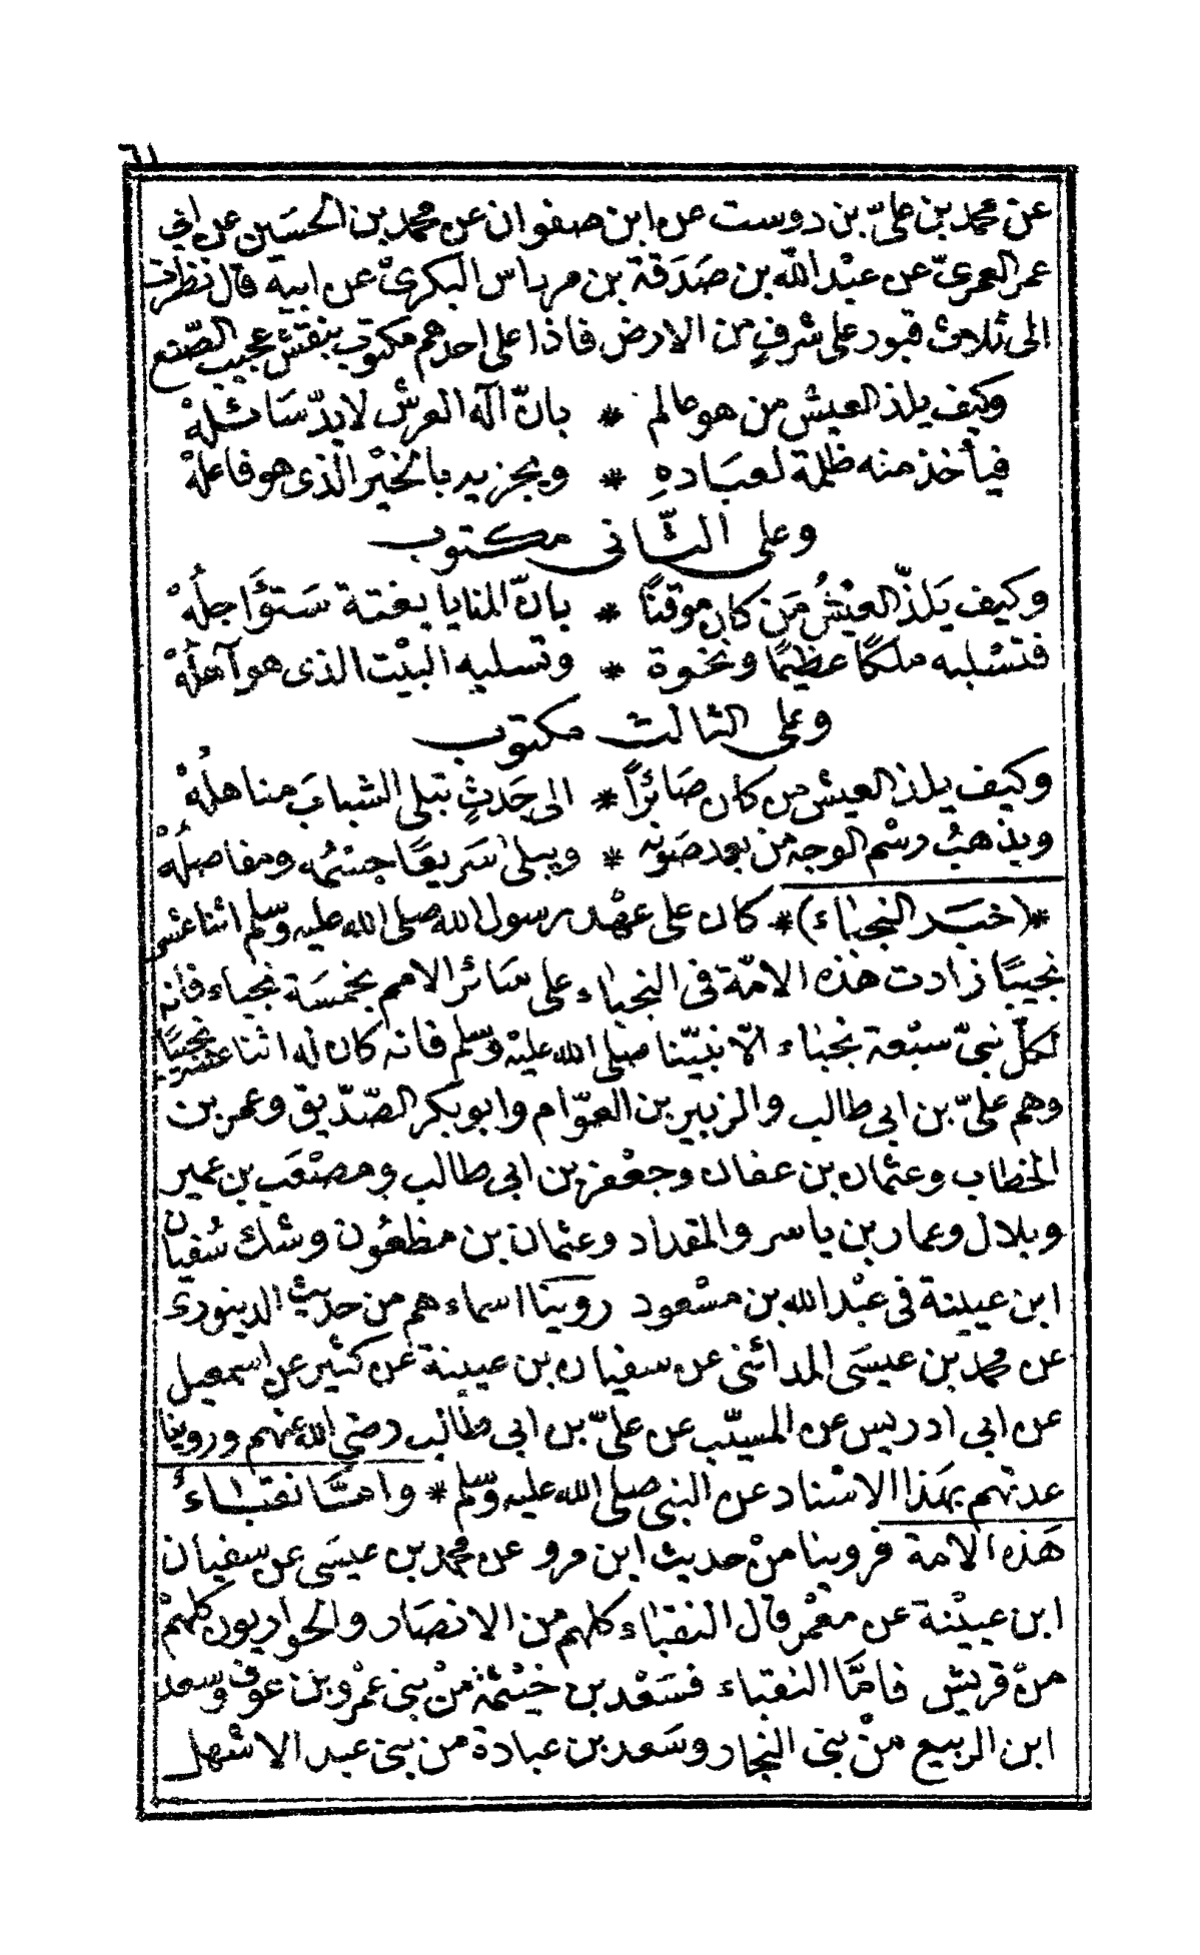 ٦١
عن محمد بن علىّ بن دوست عن ابن صفوان عن محمد بن الحسَين عن ابى
عمر العمرىّ عن عبْد اللّه بن صَدَقة بن مرداس البكرىّ عن ابيه قال نظرت
الى ثلاث قبور على شرفٍ من الارض فاذا على احدهم مكتوب بنقش عجيب الصّنع
وكيف يلذ العيش من هو عالم * بانّ اله العرش لابدّ سَائلهْ
فيأخذ منه ظلمة لعبَادهِ * ويجزيه بالخيْر الّذى هو فاعلهْ
وعلى الثّانى مكتوب
وكيف يَلذّ العيْشُ مَن كان موقنًا * بانّ المنايا بغتة سَتؤَاجلُهْ
فتسْلبه ملكًا عظيمًا ونخوة * وتسلبه البيْت الذى هو آهلُهْ
وعلى الثالث مكتوب
وكيف يلذ العيش من كان صَائراً * الى جَدثٍ تبلى الشبابَ مناهلُهْ
ويذهبُ رسْم الوجه من بعد صَونه * ويبلى سَريعًا جسْمُه ومفاصلُهْ
*(خبَر النجباء)* كان على عهْد رسول الله صلى الله عليه وسلم اثنا عشر
نجيبًا زادت هذه الامّة فى النجباء على سَائر الامم بخمسَة نجباء فانه
لكلّ نبىّ سبْعة نجباء الّا نبيّنا صلى الله عليْه وسلم فانه كان له اثنا عشر نجيبًا
وهم علىّ بن ابى طالب والزبير بن العوّام وابو بكر الصّدّيق وعمر بن
الخطاب وعثمان بن عفان وجعْفر بن ابى طالب ومصْعَب بن عمير
وبلال وعمار بن ياسر والمقداد وعثمان بن مظعُون وشك سُفيان
ابن عيينة فى عبْد الله بن مسْعود روينا اسماءهم من حديث الدينورى
عن محمد بن عيسَى المدائنى عن سفيان بن عيينة عن كثير عن اسمعيل
عن ابى ادريس عن المسيّب عن علىّ بن ابى طالب رضى الله عنهم وروينا
عدتهم بهذا الاسْناد عن النبى صلى الله عليه وسلم * وامّا نقباءُ
هَذه الامة فروينا منْ حديث ابن مرو عن محمد بن عيسَى عن سفيان
ابن عيَيْنة عن معْمر قال النقباء كلهم من الانصَار والحواريون كلهمْ
منْ قريش فامّا النقباء فسَعْد بن خيْثمة منْ بنى عمْرو بن عوف وسعد
ابن الربيع منْ بنى النجار وسَعد بن عبادة من بنى عبد الاشْهل